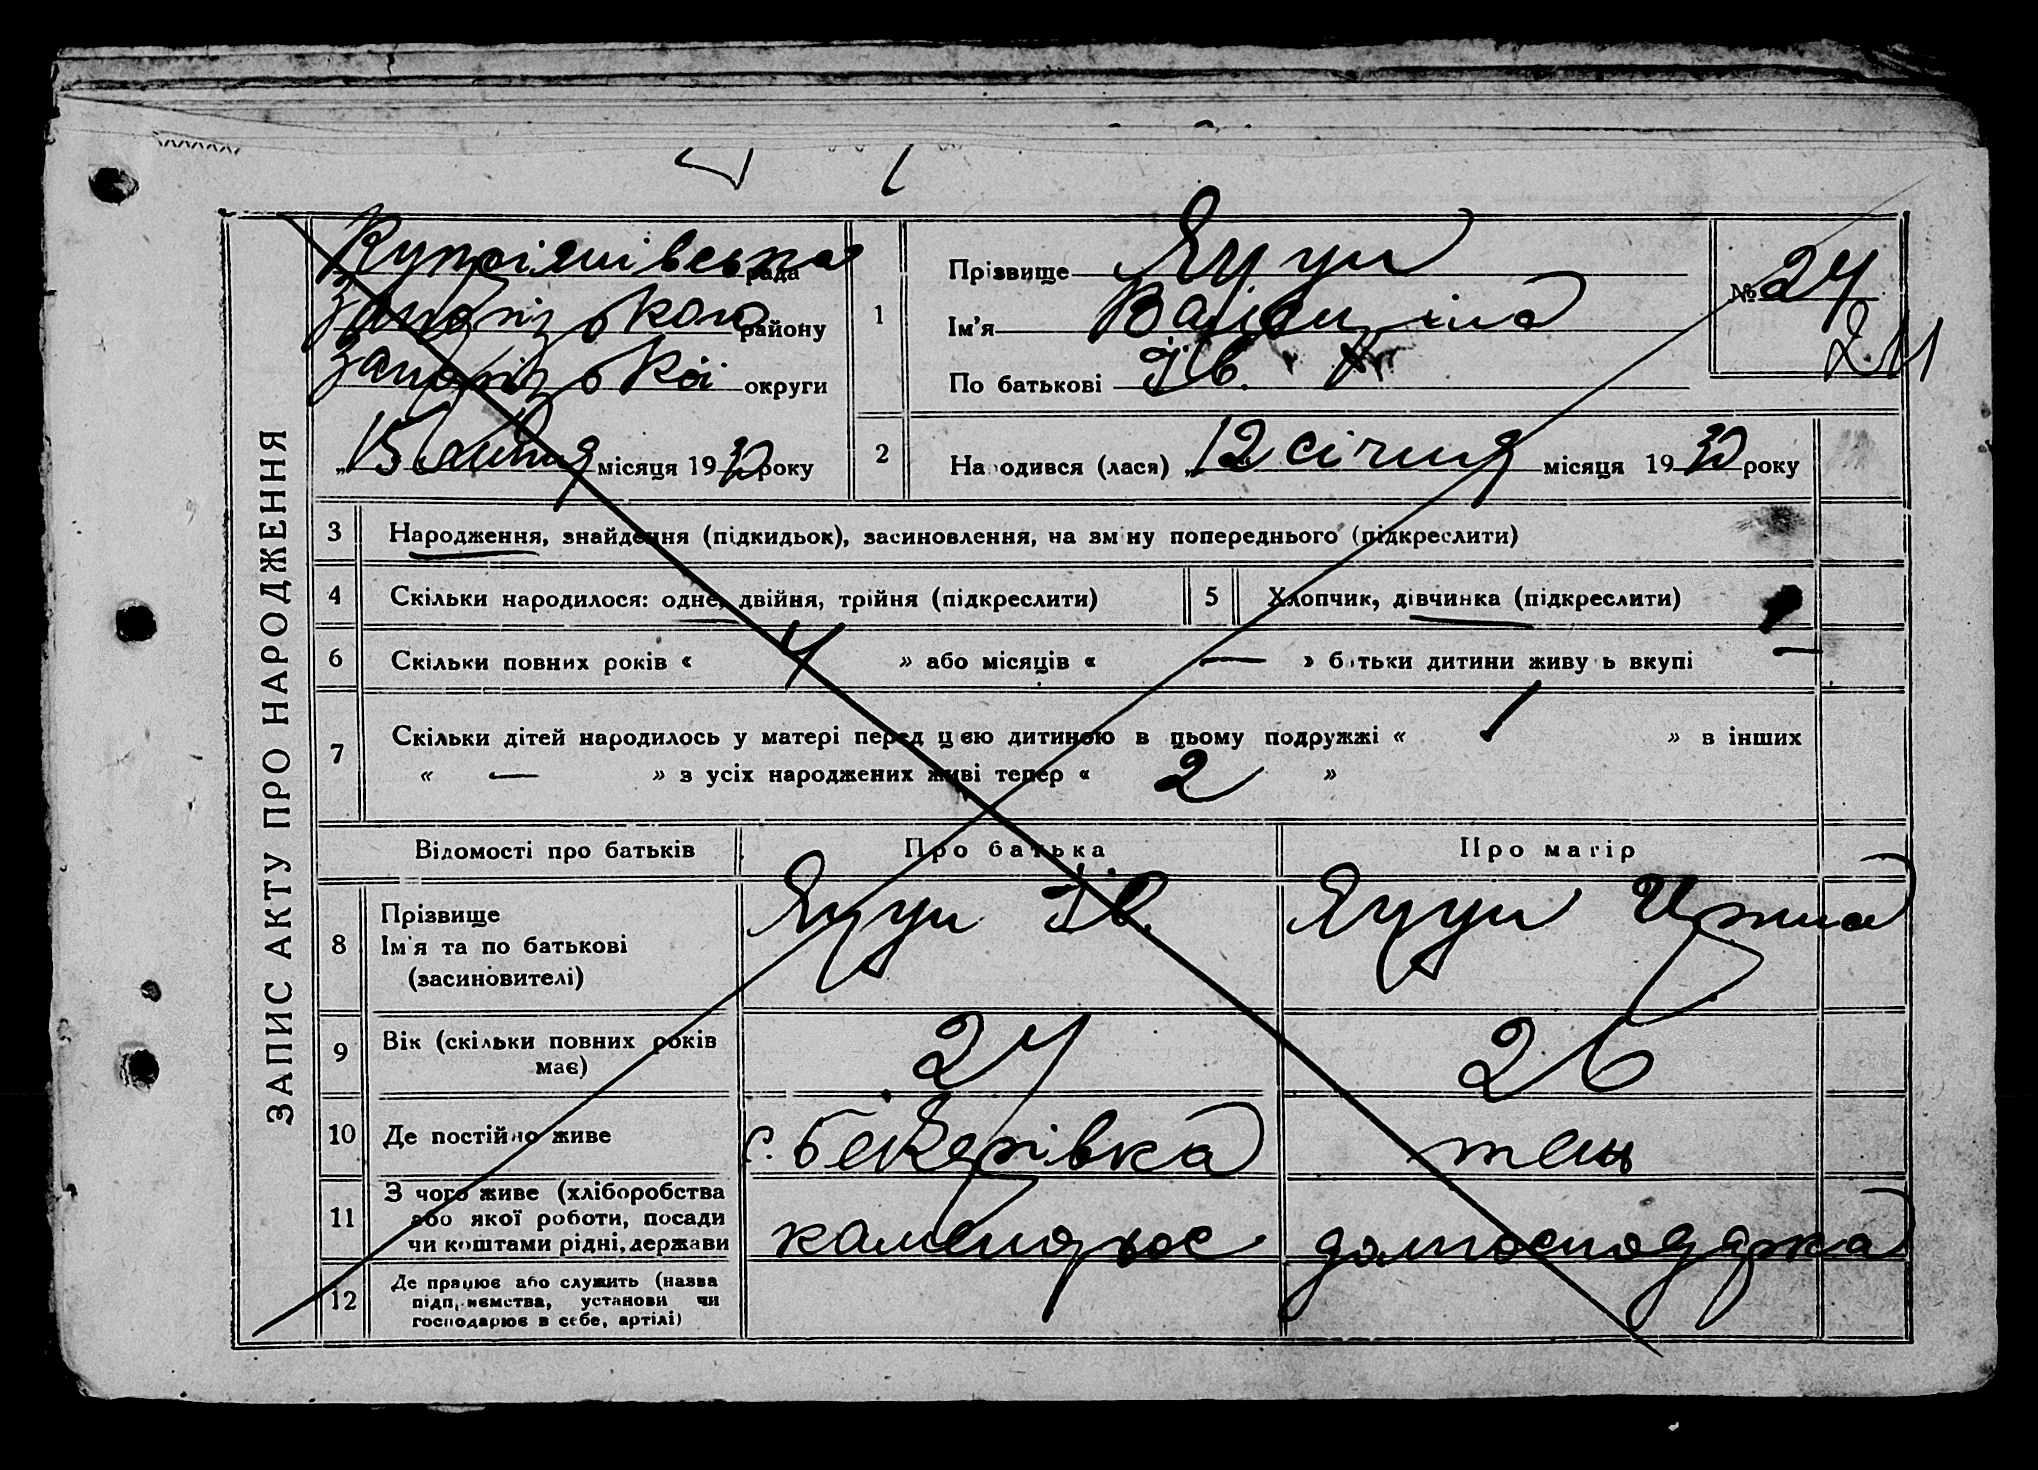 ЗАПИС АКТУ ПРО НАРОДЖЕННЯ
рада
району
округи
„15“ липня місяця 1930 року
1
Прізвище
Ім'я
По батькові Ів.
№ 24
211
2
Народився (лася) „12 січня місяця 1930 року
3 Народження, знайдення (підкидьок), засиновлення, на зміну попереднього (підкреслити)
4 Скільки народилося: одне, двійня, трійня (підкреслити)
5 Хлопчик, дівчинка (підкреслити)
6 Скільки повних років « 4 » або місяців « — » батьки дитини живуть вкупі
7 Скільки дітей народилось у матері перед цією дитиною в цьому подружжі « 1 » в інших
« — » з усіх народжених живі тепер « 2 »
Відомості про батьків
Про батька
Про матір
8 Прізвище
Ім'я та по батькові
(засиновителі)
Ів.
9 Вік (скільки повних років
має)
24
26
10 Де постійно живе
с.
11 З чого живе (хліборобства
або якої роботи, посади
чи коштами рідні, держави
домгосподарка
12 Де працює або служить (назва
підприємства, установи чи
господарює в себе, артілі)